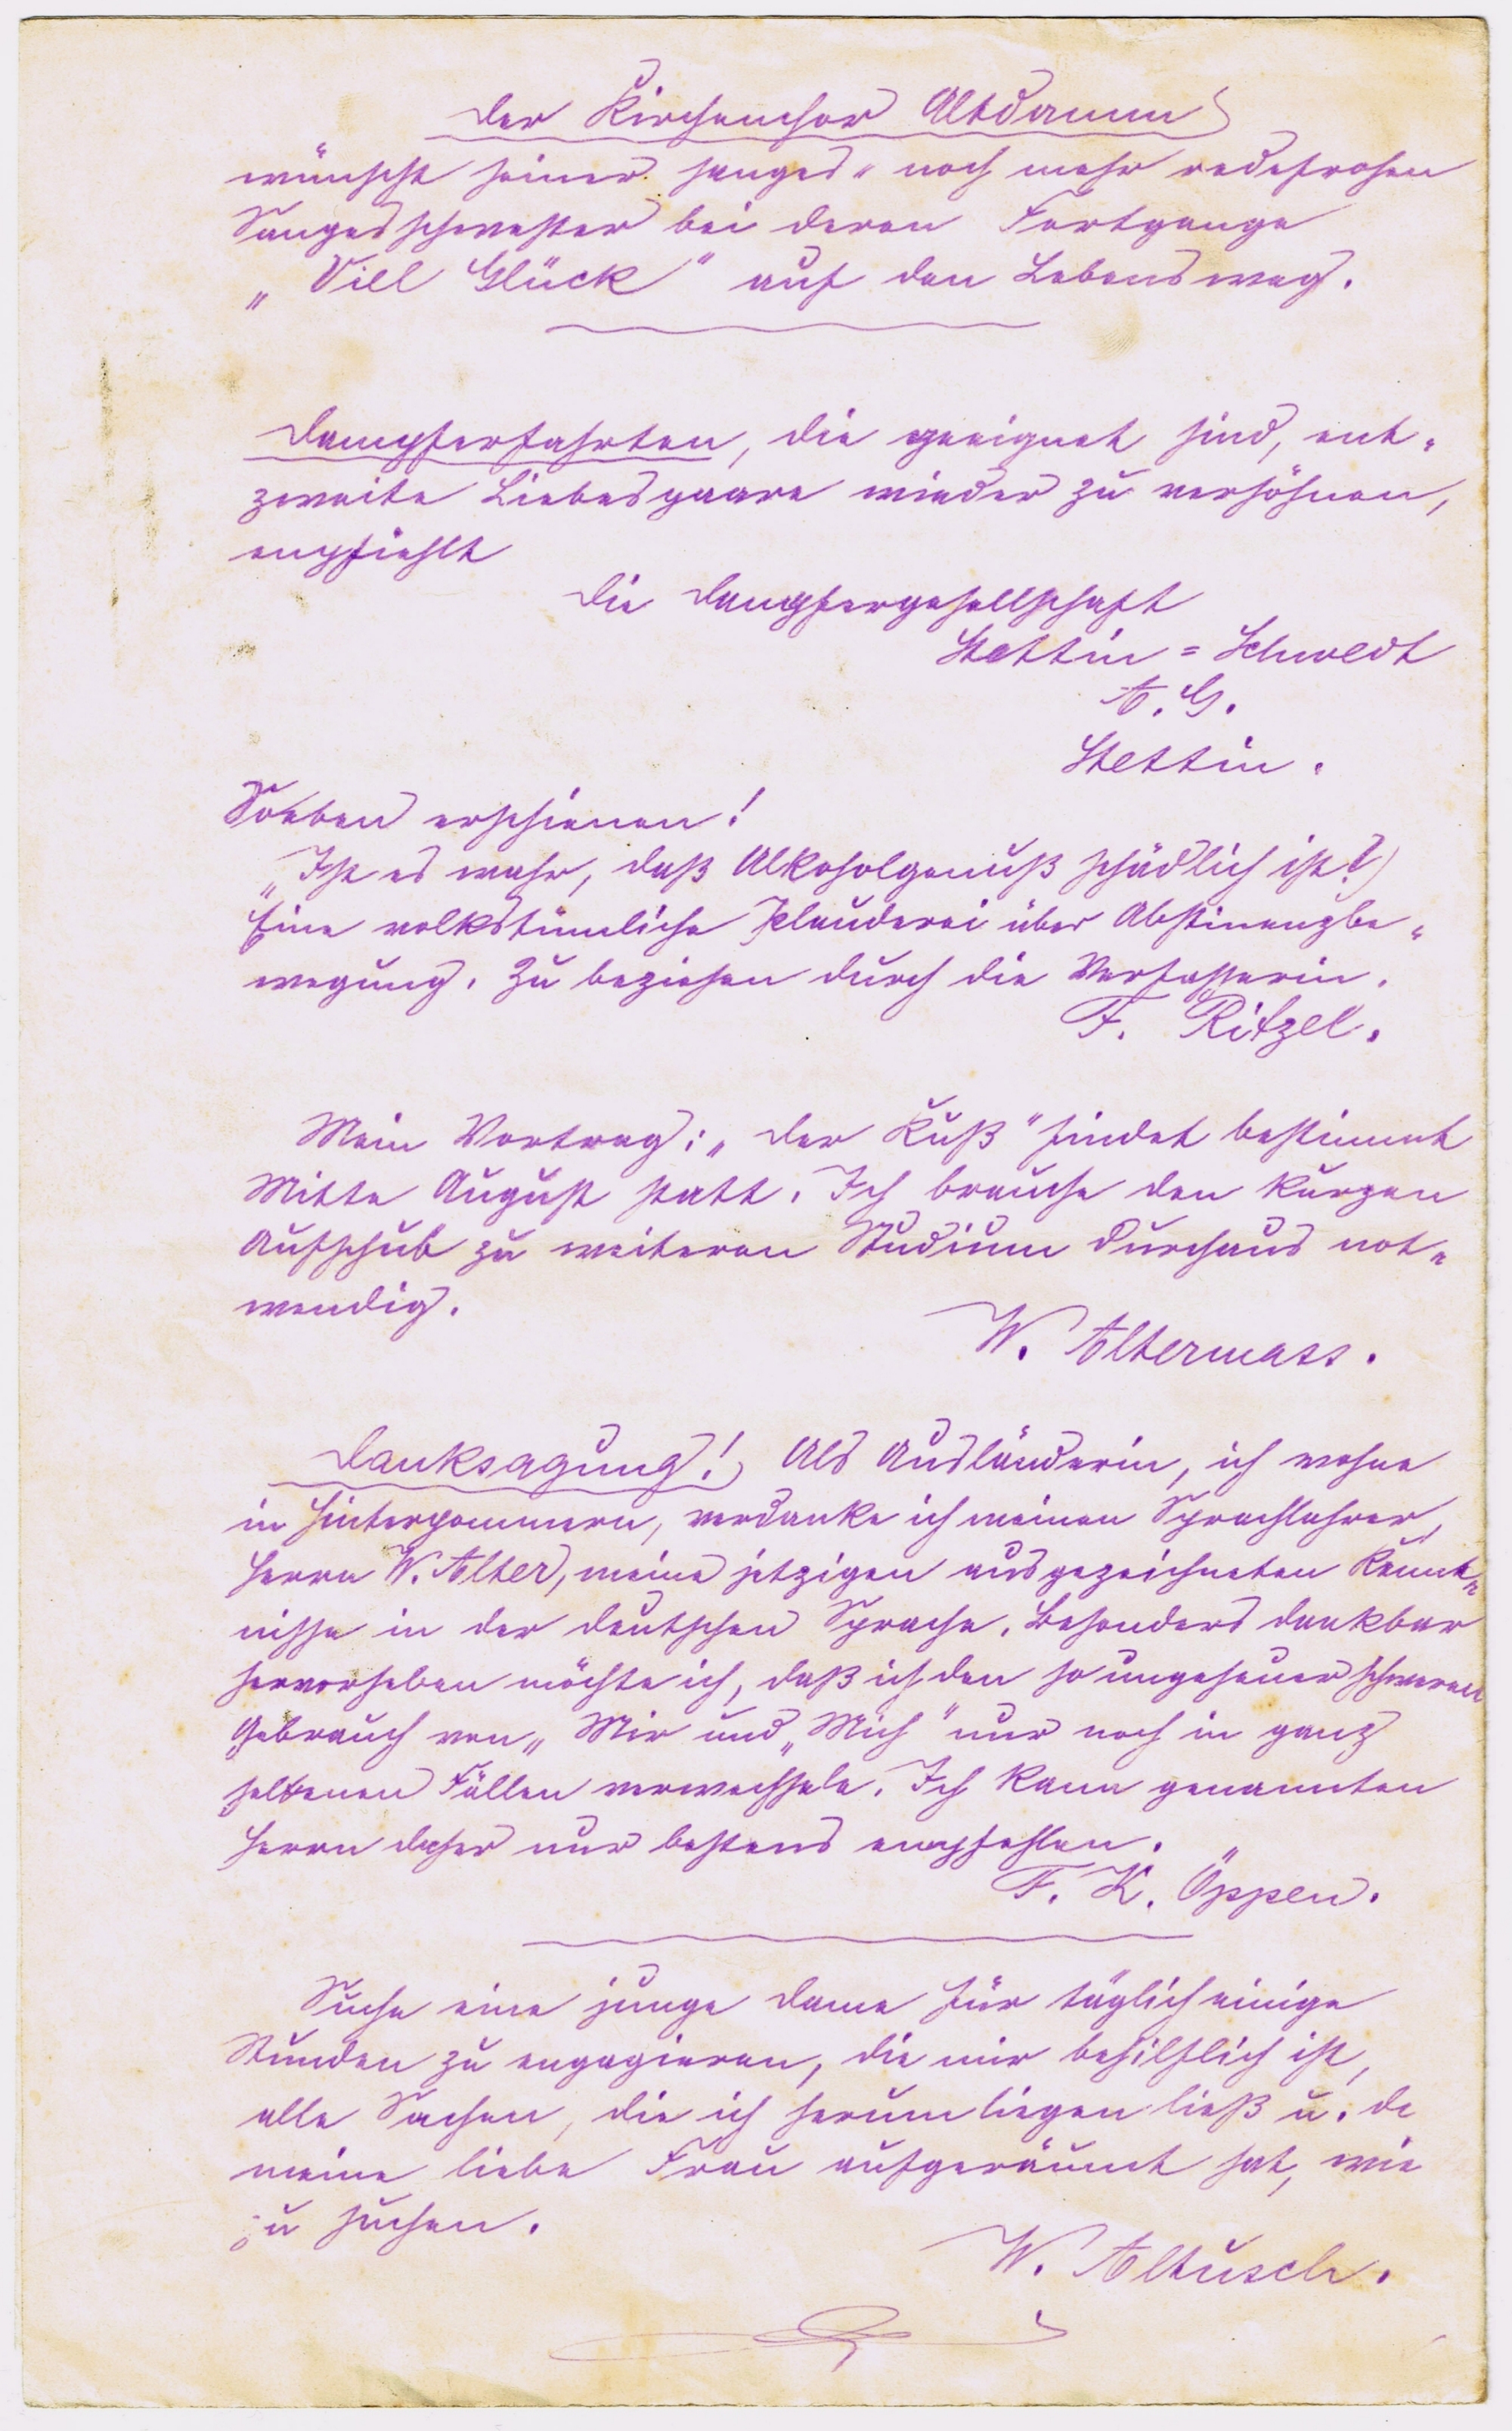 Der Kirchenchor Altdamm
wünscht seiner sanges- noch mehr redefrohen
Sangesschwester bei deren Fortgange
„Viel Glück" auf den Lebensweg.
Dampferfahrten, die geeignet sind, ent-
zweite Liebespaare wieder zu versöhnen,
empfiehlt
Die Dampfergesellschaft
Stettin = Schwedt
A. G.
Stettin.
Soeben erschienen!
„Ist es wahr, daß Alkoholgenuß schädlich ist?
Eine volkstümliche Plauderei über Abstinenzbe-
wegung. Zu beziehen durch die Verfasserin.
F. Ritzel.
Mein Vortrag: „Der Kuß" findet bestimmt
Mitte August statt. Ich brauche den kurzen
Aufschub zu weiteren Studium durchaus not-
wendig.
W. Altermass.
Danksagung! Als Ausländerin, ich wohne
in Hinterpommern, verdanke ich meinen Sprachlehrer,
Herrn W. Alter, meine jetzigen ausgezeichneten Kennt-
nisse in der deutschen Sprache. Besonders dankbar
hervorheben möchte ich, daß ich den so ungeheuer schweren
Gebrauch von „Mir und „Mich" nur noch in ganz
seltenen Fällen verwechsele. Ich kann genannten
Herrn daher nur bestens empfehlen.
F. K. Öppen.
Suche eine junge Dame für täglich einige
Stunden zu engagieren, die mir behilflich ist,
alle Sachen, die ich herumliegen ließ u. de
meine liebe Frau aufgeräumt hat, wie
zu suchen.
W. Altusch.